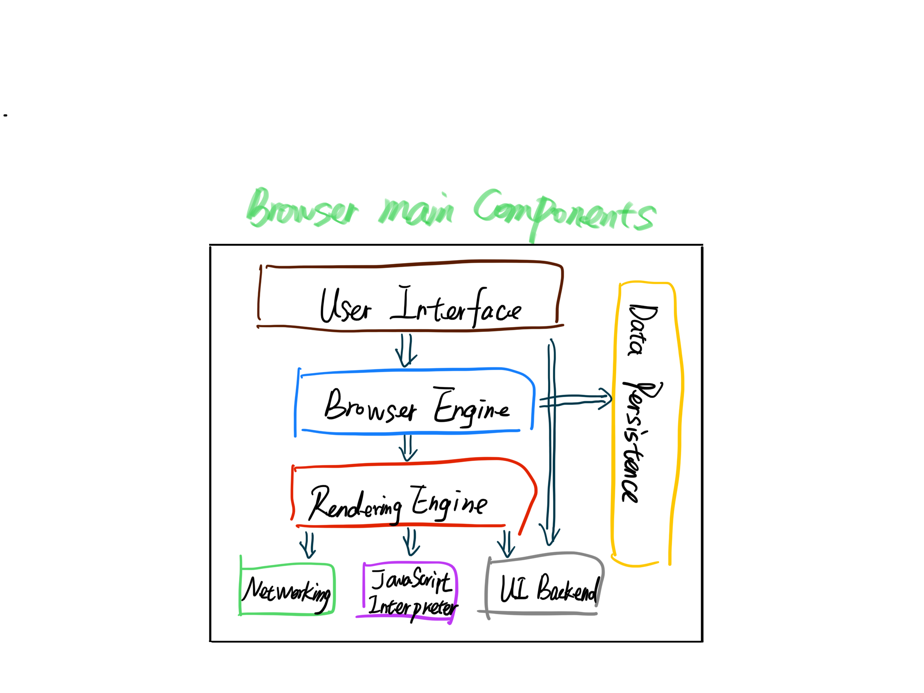 Browser main Components
User Interface
Data Persistence
Browser Engine
Rendering Engine
Networking
JavaScript
Interpreter
UI Backend